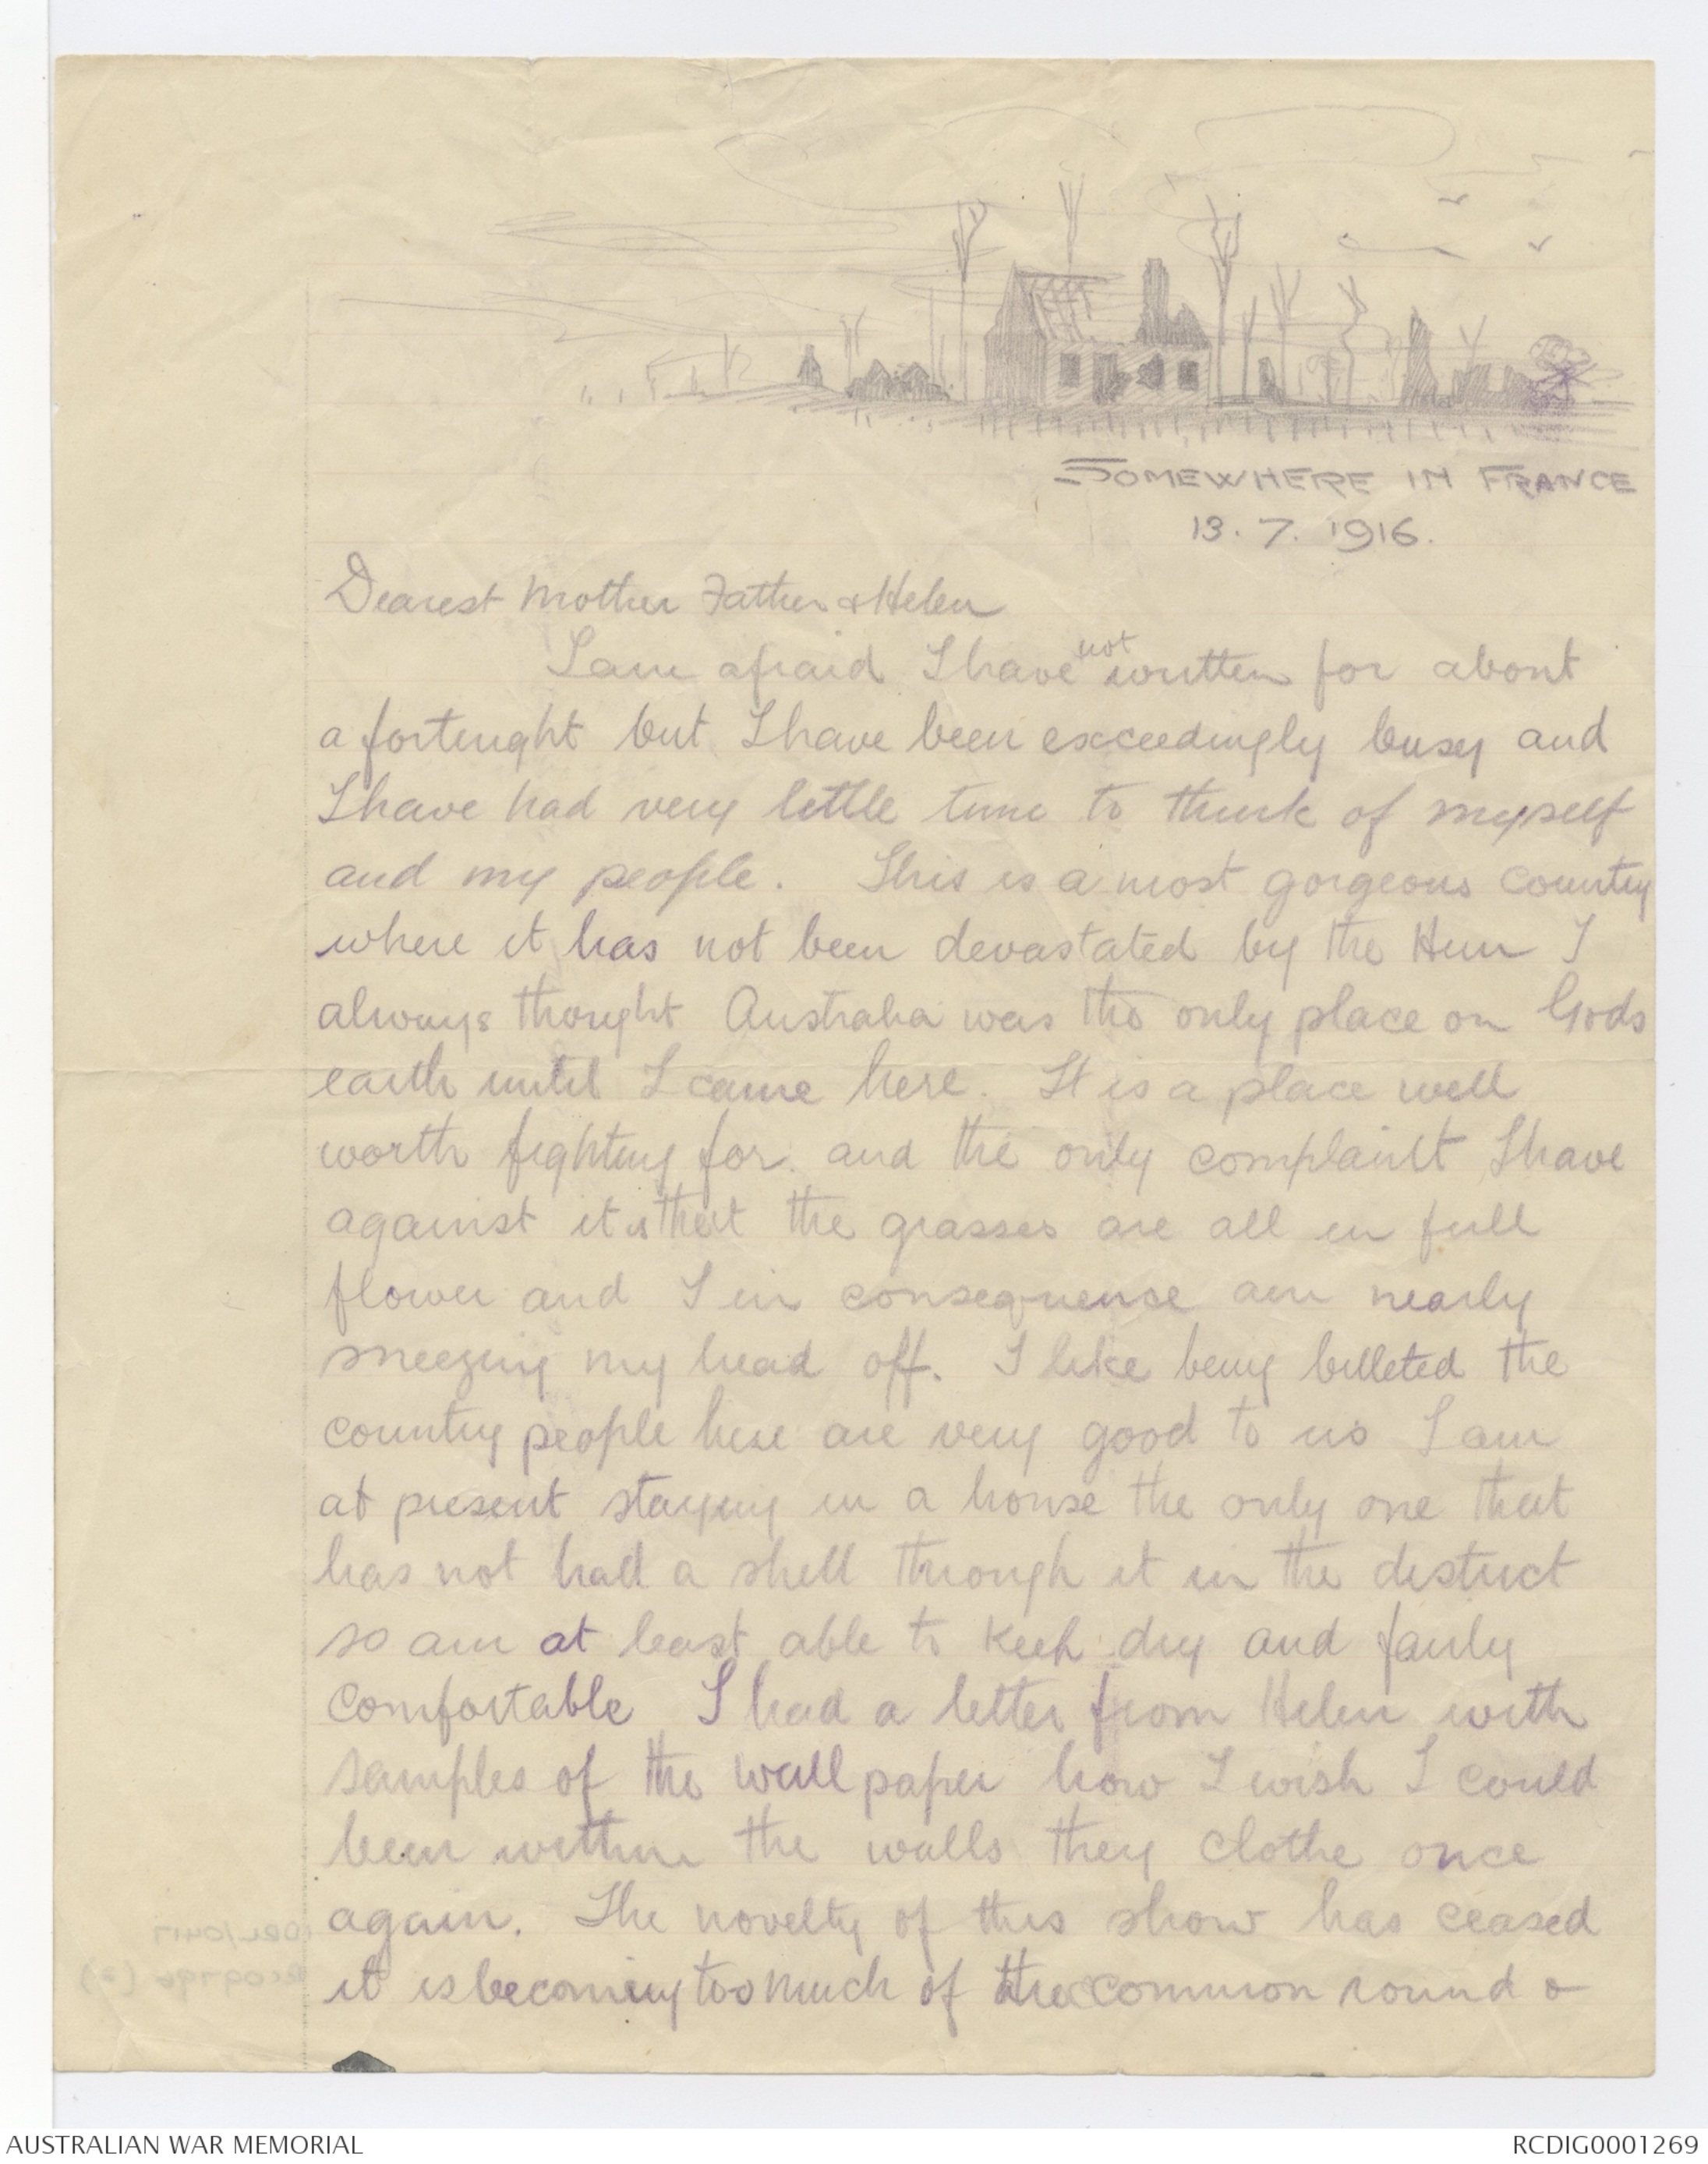 SOMEWHERE IN FRANCE
13. 7. 1916.
Dearest Mother Father & Helen
I am afraid I have not written for about
a fortnight but I have been exceedingly busy and
I have had very little time to think of myself
and my people. This is a most gorgeous country
where it has not been devastated by the Hun I
always thought Australia was the only place on Gods
earth until I came here. It is a place well
worth fighting for. and the only complaint I have
against it is that the grasses are all in full
flower and I in consequence am nearly
sneezing my head off. I like being billeted the
country people here are very good to us I am
at present staying in a house the only one that
has not had a shell through it in the district
so am at least able to keep dry and fairly
comfortable I had a letter from Helen with
samples of the wall paper how I wish I could
been within the walls they clothe once
again. The novelty of this show has ceased
it is becoming too much of the common round &
AUSTRALIAN WAR MEMORIAL
RCDIG0001269